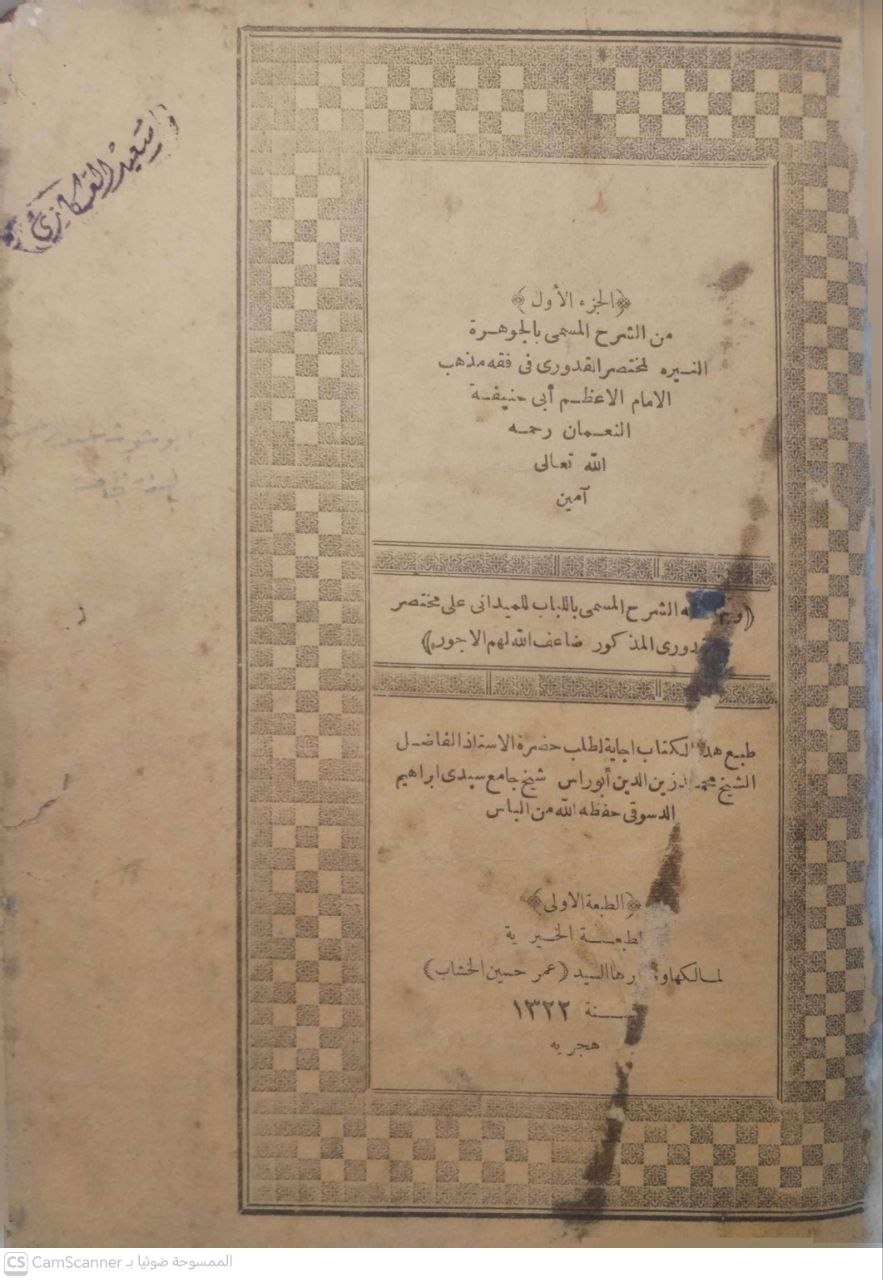 ﴿الجزء الأول﴾
من الشرح المسمى بالجوهرة
النيره لمختصر القدورى فى فقه مذهب
الامام الاعظم أبى حنيفة
النعمان رحمه
الله تعالى
آمين
الشرح المسمى باللباب للميدانى على مختصر
المذكور ضاعف الله لهم الاجور﴾
طبع هذا الكتاب اجابة لطلب حضرة الاستاذ الفاضل
الشيخ محمد زين الدين أبوراس شيخ جامع سيدى ابراهيم
الدسوقى حفظه الله من الباس
﴿الطبعة الاولى﴾
الخيرية
السيد (عمر حسين الخشاب)
سنة ١٣٢٢
هجريه
سعيد
CS CamScanner الممسوحة ضوئيا بـ